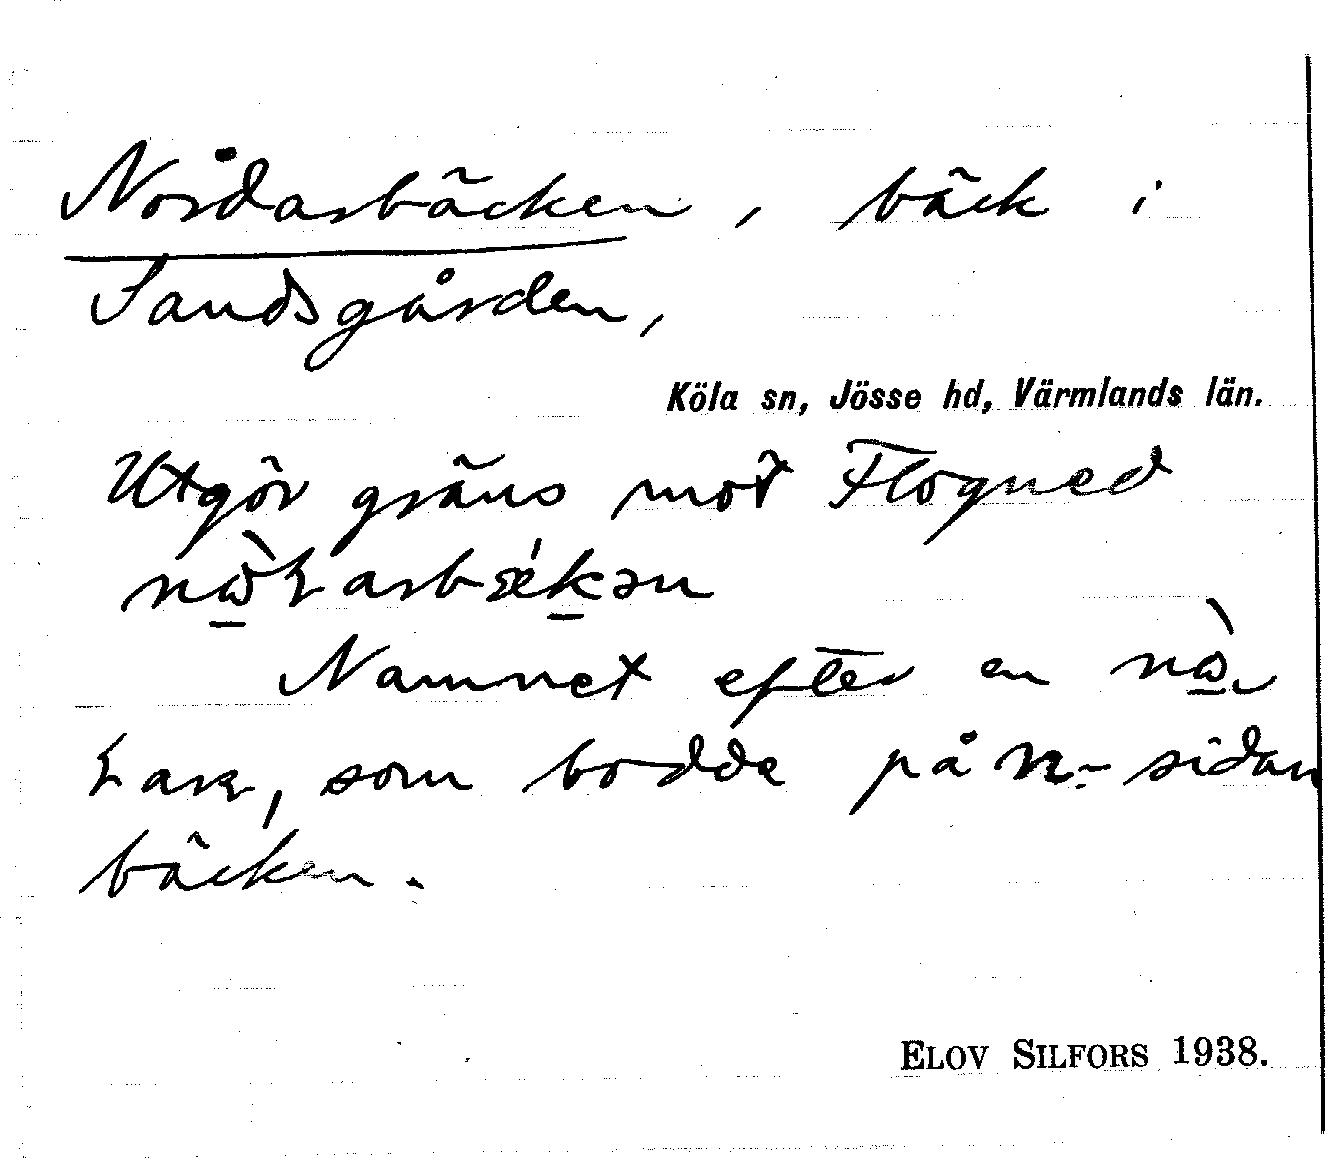 Nordasbäcken, bäck i
Sandsgården,
Köla sn, Jösse hd, Värmlands län.
Utgör gräns mot Flogned
Namnet efter en
som bodde på n.-sidan
bäcken.
ELOV SILFORS 1938.